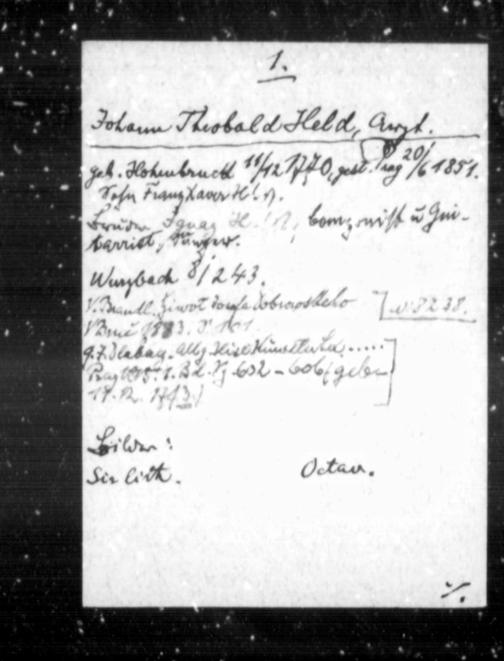 1.
Johann Theobald Held, Arzt.
geb. Hohenbruck 11/12 1770, gest. Prag 20/6 1851.
Sohn Franz Xaver H's.
Bruder Ignaz H's, Componist u Gui-
tarrist, Sänger.
Wurzbach 8/243.
V. Brandl. Život Josefa Dobrovského
V Brně 1883.
Allg. Hist. Künstler Lex.....
Prag 1815. 1. Bd.
17. 12. 1743)
Bilder:
Sir lith. Octav.